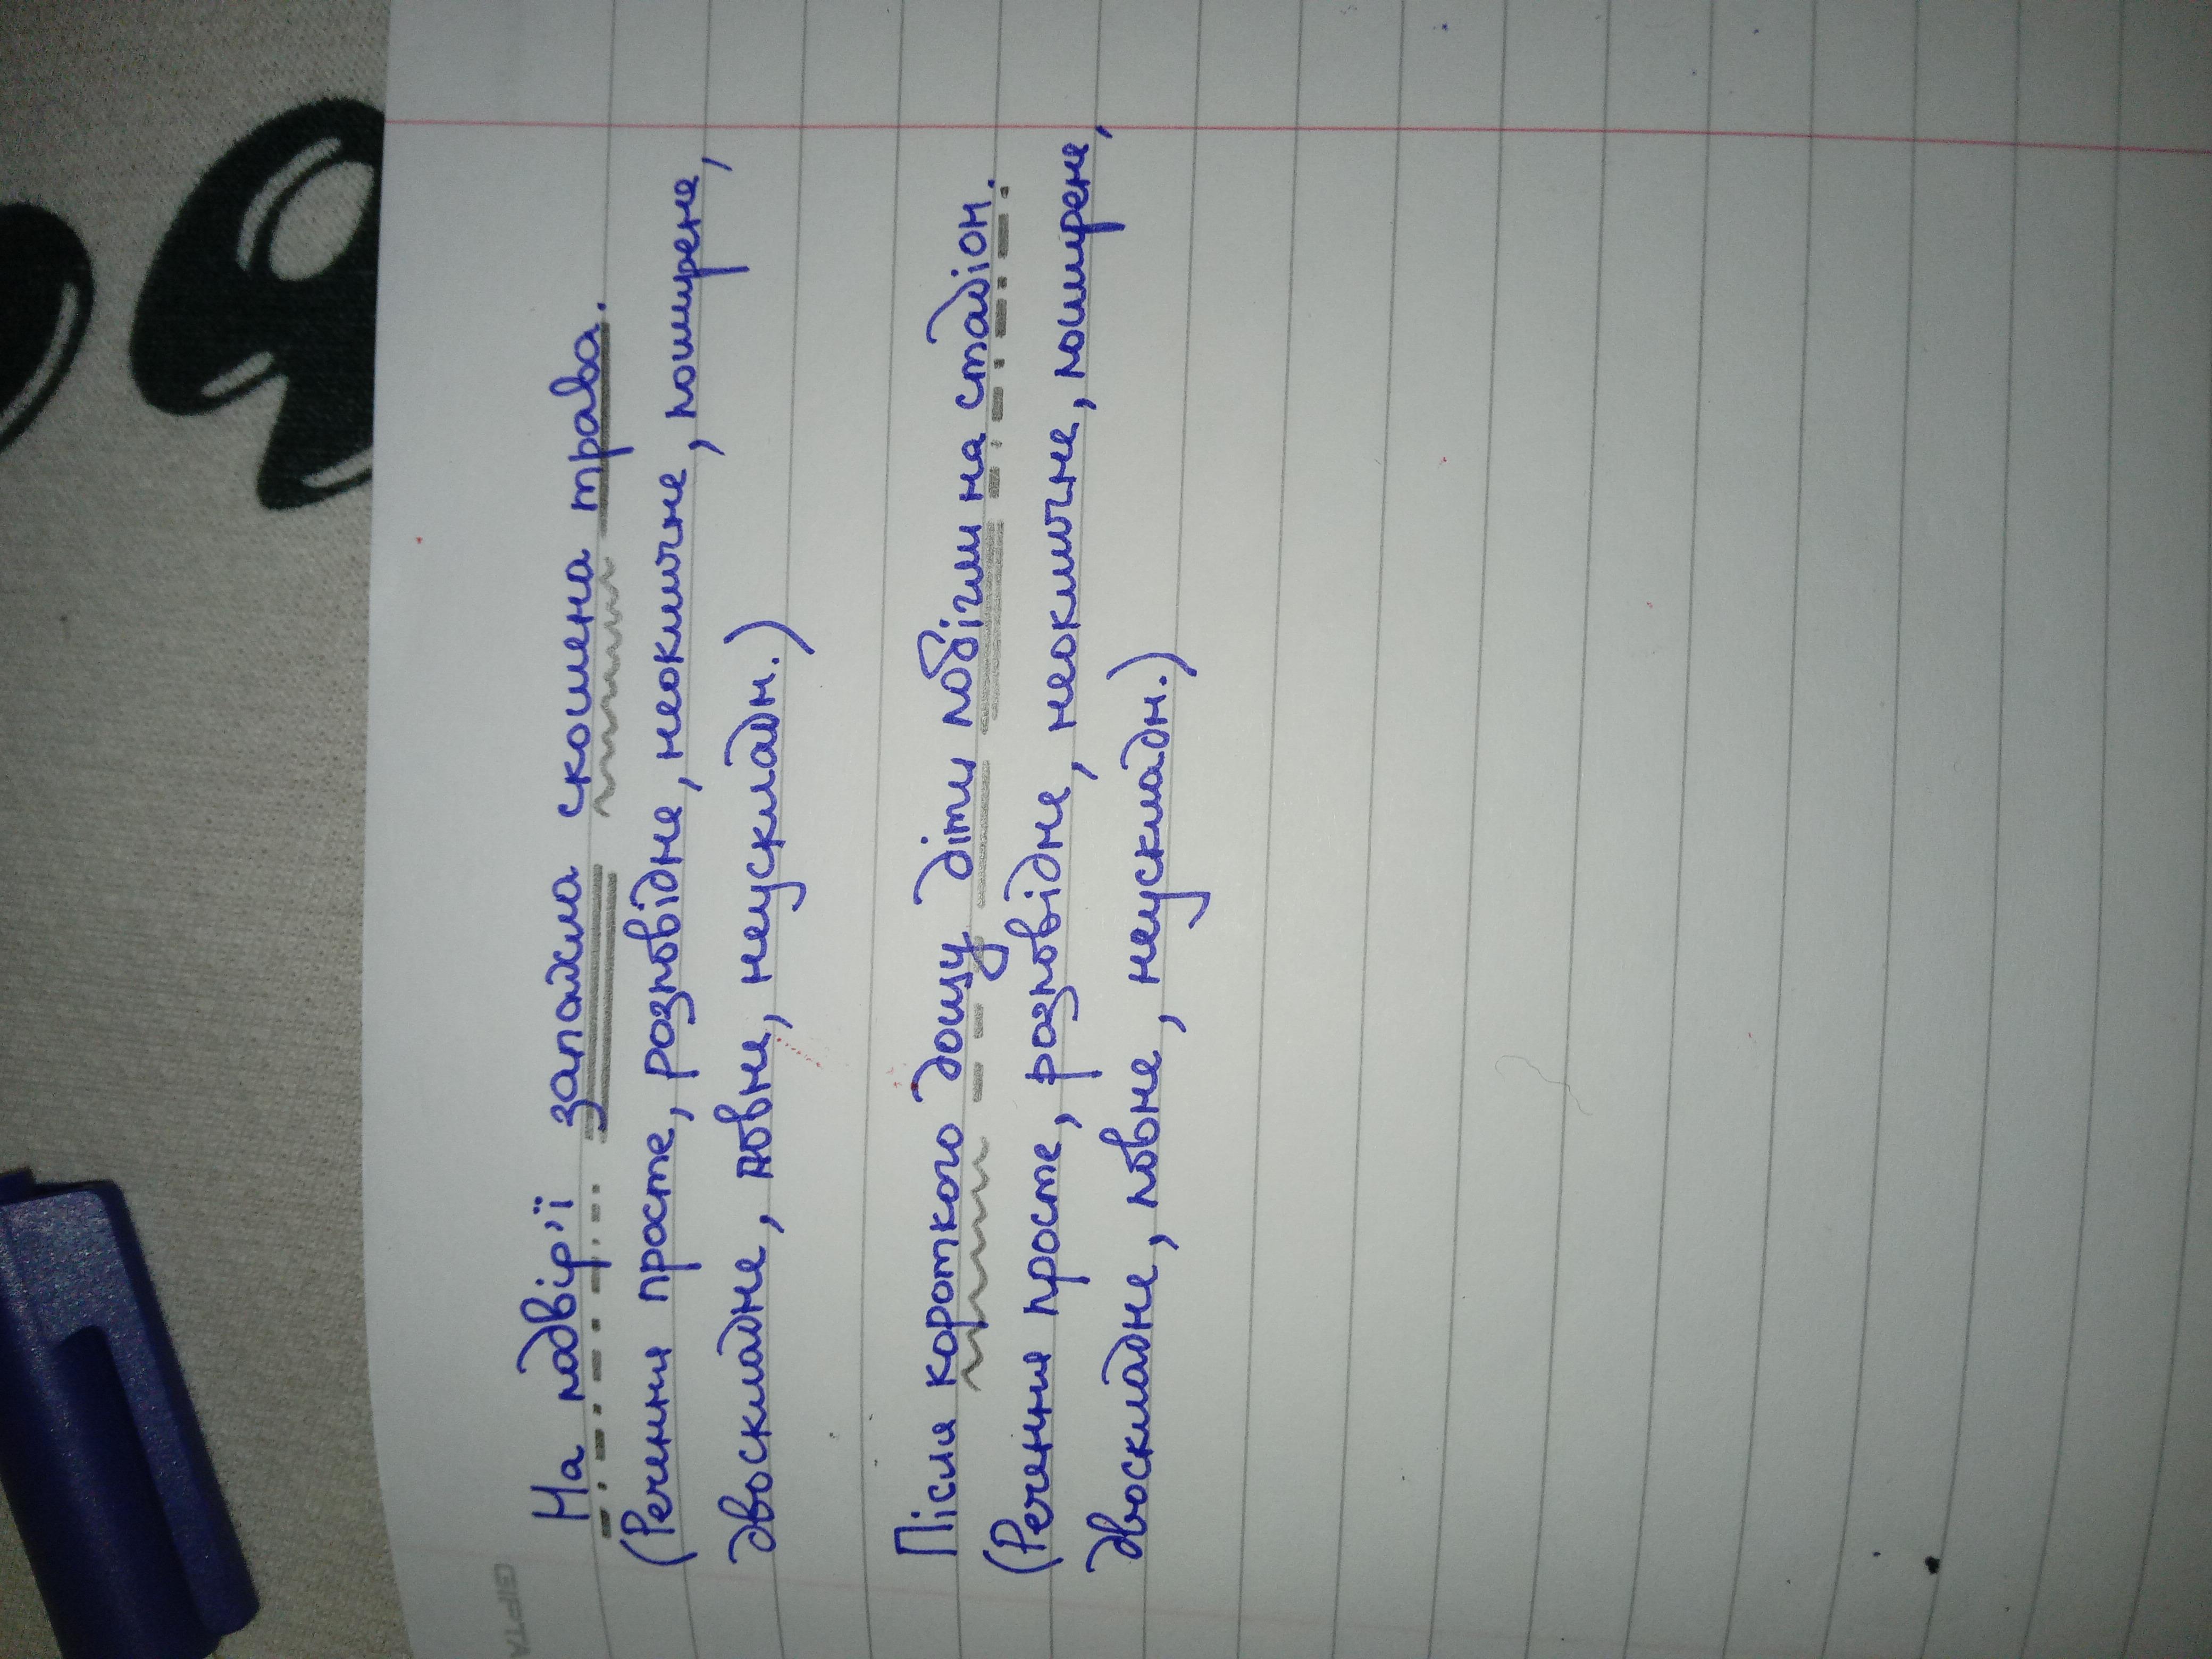 На подвір'ї запахла скошена трава.
(Речення просте, розповідне, неокличне, поширене,
двоскладне, повне, неускладн.)
Після короткого дощу діти побігли на стадіон.
(Речення просте, розповідне, неокличне, поширене,
двоскладне, повне, неускладн.)